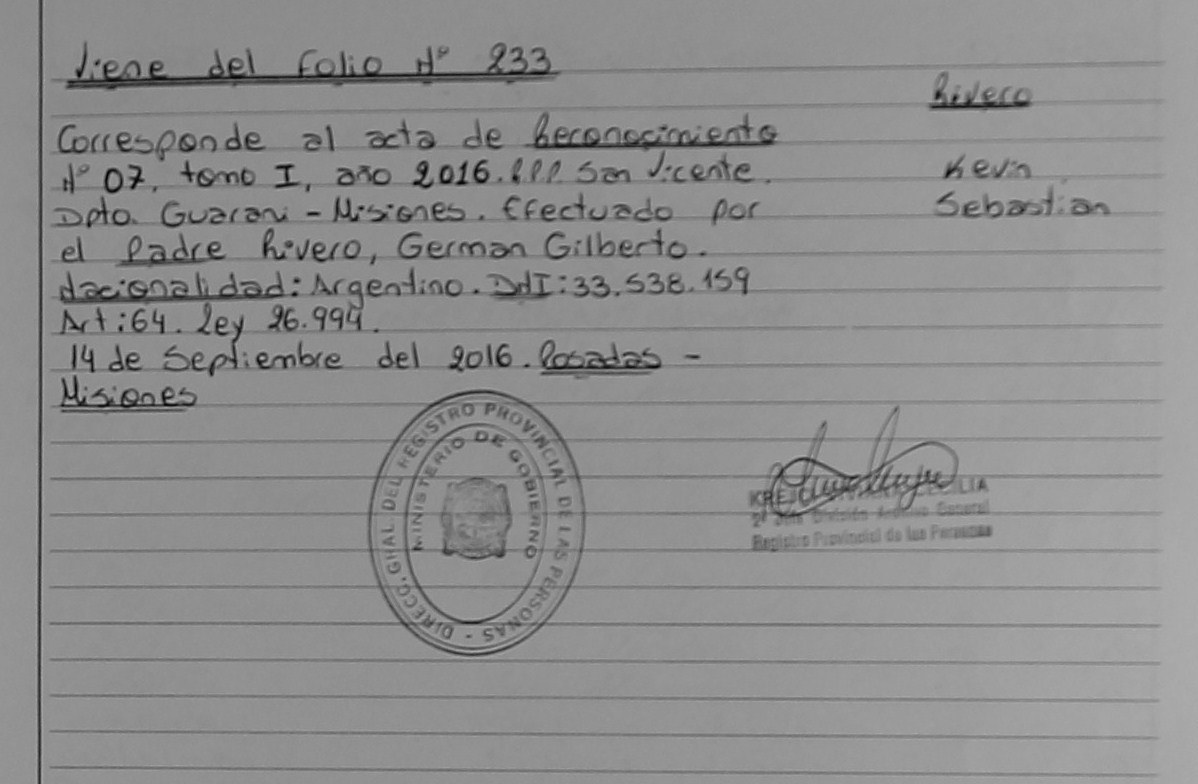 Viene del Folio N° 233
Rivero
Corresponde al acta de Reconocimiento
N° 07, tomo I, año 2016. R.P.P. San Vicente.
Kevin
Dpto. Guarani - Misiones. Efectuado por
Sebastian
el Padre Rivero, German Gilberto.
Nacionalidad: Argentino. DNI: 33.538.159
Art: 64. Ley 26.994.
14 de Septiembre del 2016. Posadas -
Misiones
DIRECC. GRAL. DEL REGISTRO PROVINCIAL DE LAS PERSONAS -
MINISTERIO DE GOBIERNO
2° División Archivo General
Registro Provincial de las Personas